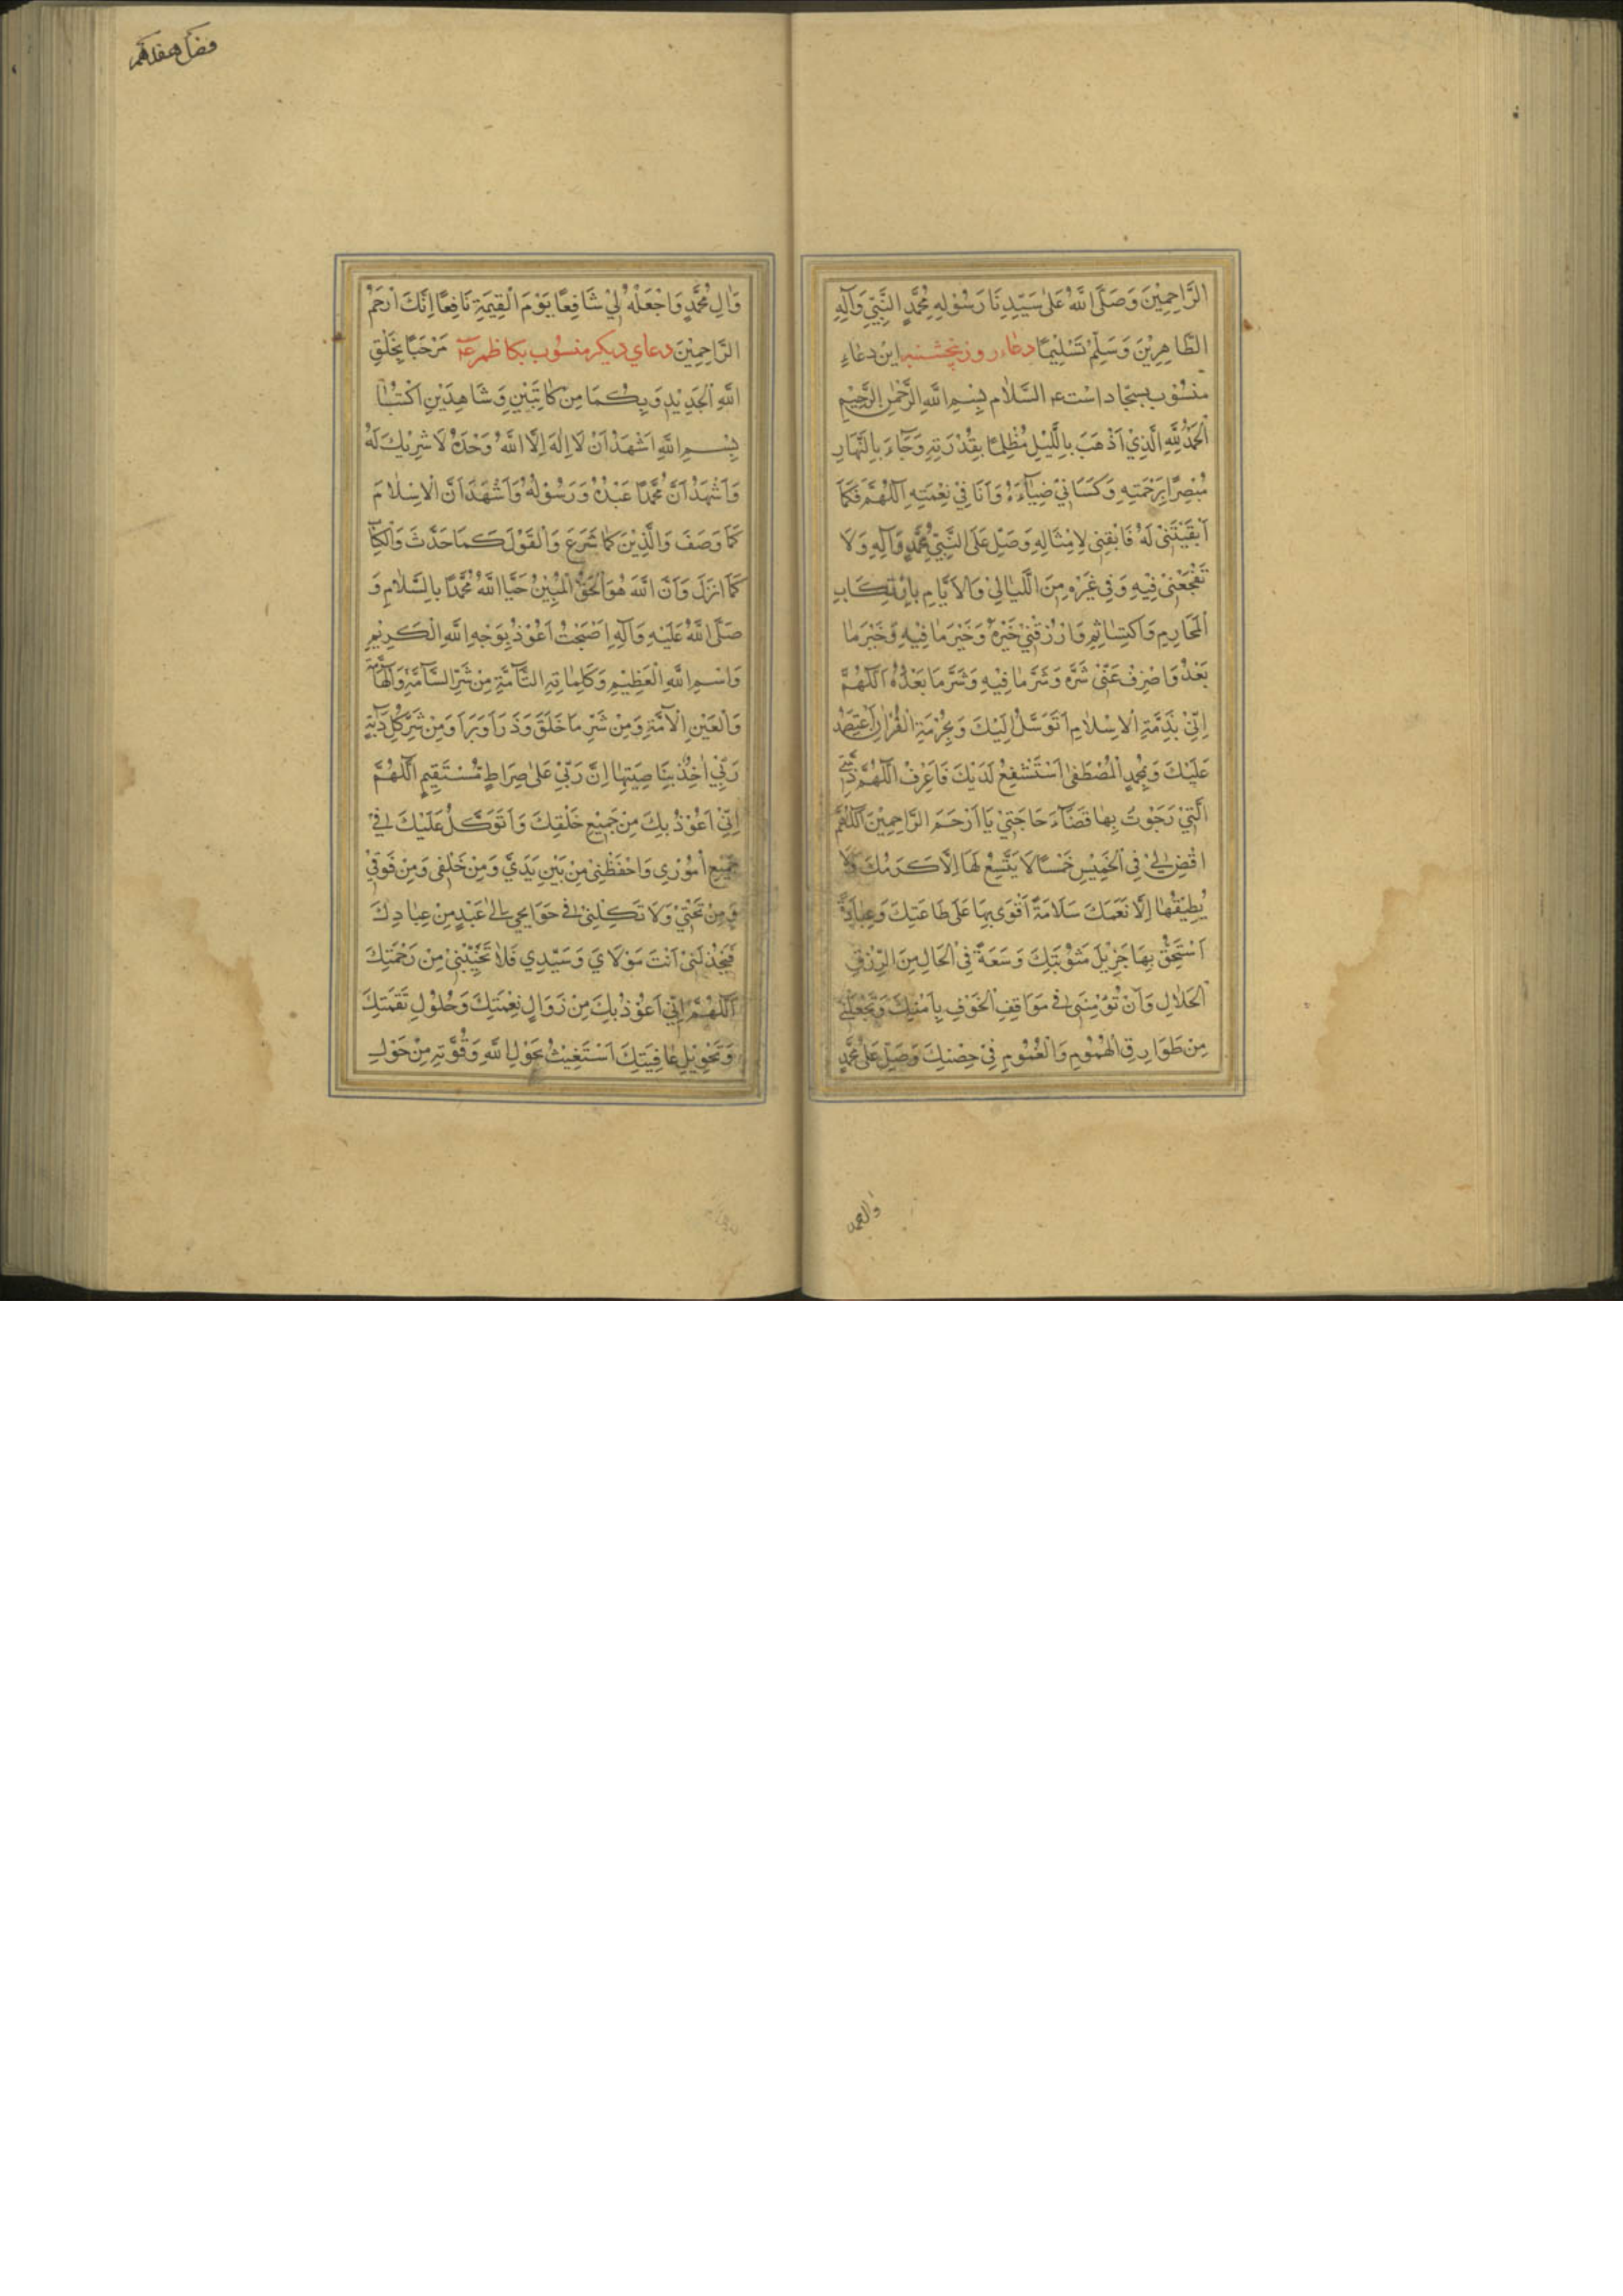 الرَّاحِمِيْنَ وَصَلَّى اللهُ عَلٰى سَيِّدِنَا رَسُوْلِهِ مُحَمَّدٍ النَّبِيِّ وَآلِهِ
الطَّاهِرِيْنَ وَسَلِّمْ تَسْلِيْمًا دعاء روز پنجشنبه این دعاءِ
منسُوب بسجّاد است ع السَّلام بِسْمِ اللهِ الرَّحْمٰنِ الرَّحِيْمِ
اَلْحَمْدُ لِلّٰهِ الَّذِيْ اَذْهَبَ بِاللَّيْلِ مُظْلِمًا بِقُدْرَتِهِ وَجَاءَ بِالنَّهَارِ
مُبْصِرًا بِرَحْمَتِهِ وَكَسَانِيْ ضِيَاءَهُ وَاَنَا فِيْ نِعْمَتِهِ اَللّٰهُمَّ فَكَمَا
اَبْقَيْتَنِيْ لَهُ فَابْقِنِيْ لِاَمْثَالِهِ وَصَلِّ عَلَى النَّبِيِّ مُحَمَّدٍ وَآلِهِ وَلَا
تَفْجَعْنِيْ فِيْهِ وَفِيْ غَيْرِهِ مِنَ اللَّيَالِيْ وَالْاَيَّامِ بِارْتِكَابِ
الْمَحَارِمِ وَاكْتِسَابِ الْمَآثِمِ وَارْزُقْنِيْ خَيْرَهُ وَخَيْرَ مَا فِيْهِ وَخَيْرَ مَا
بَعْدَهُ وَاصْرِفْ عَنِّيْ شَرَّهُ وَشَرَّ مَا فِيْهِ وَشَرَّ مَا بَعْدَهُ اَللّٰهُمَّ
اِنِّيْ بِذِمَّةِ الْاِسْلَامِ اَتَوَسَّلُ اِلَيْكَ وَبِحُرْمَةِ الْقُرْاٰنِ اَعْتَمِدُ
عَلَيْكَ وَبِمُحَمَّدٍ الْمُصْطَفٰى اَسْتَشْفِعُ لَدَيْكَ فَاعْرِفْ اَللّٰهُمَّ ذِمَّتِيَ
الَّتِيْ رَجَوْتُ بِهَا قَضَاءَ حَاجَتِيْ يَا اَرْحَمَ الرَّاحِمِيْنَ اَللّٰهُمَّ
اقْضِ لِيْ فِي الْخَمِيْسِ خَمْسًا لَا يَتَّسِعُ لَهَا اِلَّا كَرَمُكَ وَلَا
يُطِيْقُهَا اِلَّا نِعَمُكَ سَلَامَةً اَقْوٰى بِهَا عَلٰى طَاعَتِكَ وَعِبَادَةً
اَسْتَحِقُّ بِهَا جَزِيْلَ مَثُوْبَتِكَ وَسَعَةً فِي الْحَالِ مِنَ الرِّزْقِ
الْحَلَالِ وَاَنْ تُؤْمِنَنِيْ فِيْ مَوَاقِفِ الْخَوْفِ بِاَمْنِكَ وَتَجْعَلَنِيْ
مِنْ طَوَارِقِ الْهُمُوْمِ وَالْغُمُوْمِ فِيْ حِصْنِكَ وَصَلِّ عَلٰى مُحَمَّدٍ
وَاٰلِ مُحَمَّدٍ وَاجْعَلْهُ لِيْ شَافِعًا يَوْمَ الْقِيٰمَةِ نَافِعًا اِنَّكَ اَرْحَمُ
الرَّاحِمِيْنَ دعاي ديكر منسُوب بكاظم ع مَرْحَبًا بِخَلْقِ
اللهِ الْجَدِيْدِ وَبِكُمَا مِنْ كَاتِبَيْنِ وَشَاهِدَيْنِ اُكْتُبَا
بِسْمِ اللهِ اَشْهَدُ اَنْ لَا اِلٰهَ اِلَّا اللهُ وَحْدَهُ لَا شَرِيْكَ لَهُ
وَاَشْهَدُ اَنَّ مُحَمَّدًا عَبْدُهُ وَرَسُوْلُهُ وَاَشْهَدُ اَنَّ الْاِسْلَامَ
كَمَا وَصَفَ وَالدِّيْنَ كَمَا شَرَعَ وَالْقَوْلَ كَمَا حَدَّثَ وَالْكِتَابَ
كَمَا اَنْزَلَ وَاَنَّ اللهَ هُوَ الْحَقُّ الْمُبِيْنُ حَيَّا اللهُ مُحَمَّدًا بِالسَّلَامِ وَ
صَلَّى اللهُ عَلَيْهِ وَآلِهِ اَصْبَحْتُ اَعُوْذُ بِوَجْهِ اللهِ الْكَرِيْمِ
وَاسْمِ اللهِ الْعَظِيْمِ وَكَلِمَاتِهِ التَّامَّةِ مِنْ شَرِّ السَّامَّةِ وَالْهَامَّةِ
وَالْعَيْنِ الْلَامَّةِ وَمِنْ شَرِّ مَا خَلَقَ وَذَرَاَ وَبَرَاَ وَمِنْ شَرِّ كُلِّ دَابَّةٍ
رَبِّيْ اٰخِذٌ بِنَاصِيَتِهَا اِنَّ رَبِّيْ عَلٰى صِرَاطٍ مُسْتَقِيْمٍ اَللّٰهُمَّ
اِنِّيْ اَعُوْذُ بِكَ مِنْ جَمِيْعِ خَلْقِكَ وَاَتَوَكَّلُ عَلَيْكَ فِيْ
جَمِيْعِ اُمُوْرِيْ وَاحْفَظْنِيْ مِنْ بَيْنِ يَدَيَّ وَمِنْ خَلْفِيْ وَمِنْ فَوْقِيْ
وَمِنْ تَحْتِيْ وَلَا تَكِلْنِيْ فِيْ حَوَايِجِيْ اِلٰى عَبْدٍ مِنْ عِبَادِكَ
فَيَخْذُلَنِيْ اَنْتَ مَوْلَايَ وَسَيِّدِيْ فَلَا تُخَيِّبْنِيْ مِنْ رَحْمَتِكَ
اَللّٰهُمَّ اِنِّيْ اَعُوْذُ بِكَ مِنْ زَوَالِ نِعْمَتِكَ وَحُلُوْلِ نَقَمَتِكَ
وَتَحْوِيْلِ عَافِيَتِكَ اَسْتَغِيْثُ بِحَوْلِ اللهِ وَقُوَّتِهِ مِنْ حَوْلِ